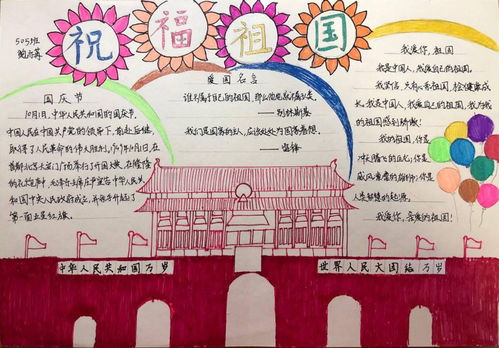 祝福祖国
505班
国庆节
10月1日,中华人民共和国的国庆节。
中国人民在中国共产党的领导下,前赴后继,
取得了人民革命的伟大胜利。1949年10月1日,在
首都北京天安门广场举行了开国大典,在隆隆
的礼炮声中,毛泽东主席庄严宣告中华人民共
和国中央人民政府成立,并亲手升起了
第一面五星红旗。
爱国名言
谁不属于自己的祖国,那么他也就不属于人类。
——别林斯基
我们是国家的主人,应该处处为国家着想。
——雷锋
我爱你,祖国
我是中国人,我爱自己的祖国。
我是中国人,我爱自己的祖国,我为我的
祖国感到骄傲!
我的祖国,你是
冲天腾飞的巨龙;你是
威风凛凛的雄狮;你是
人类智慧的起源。
我爱你,亲爱的祖国!
中华人民共和国万岁
世界人民大团结万岁